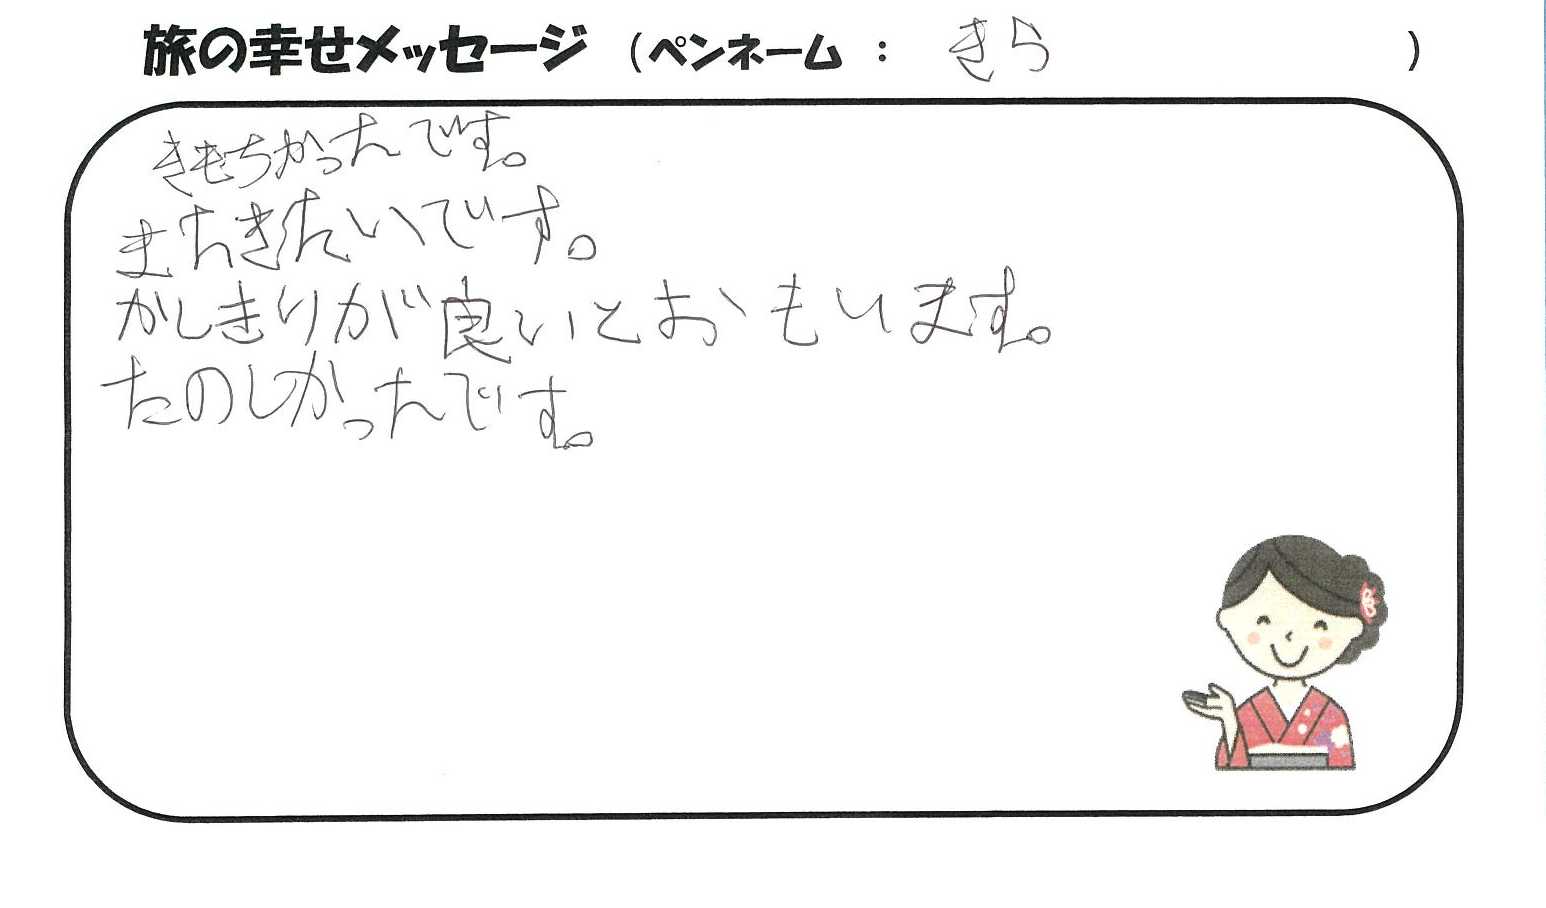 旅の幸せメッセージ （ペンネーム ： きら ）
きもちかったです。
またきたいです。
かしきりが良いとおもいます。
たのしかったです。